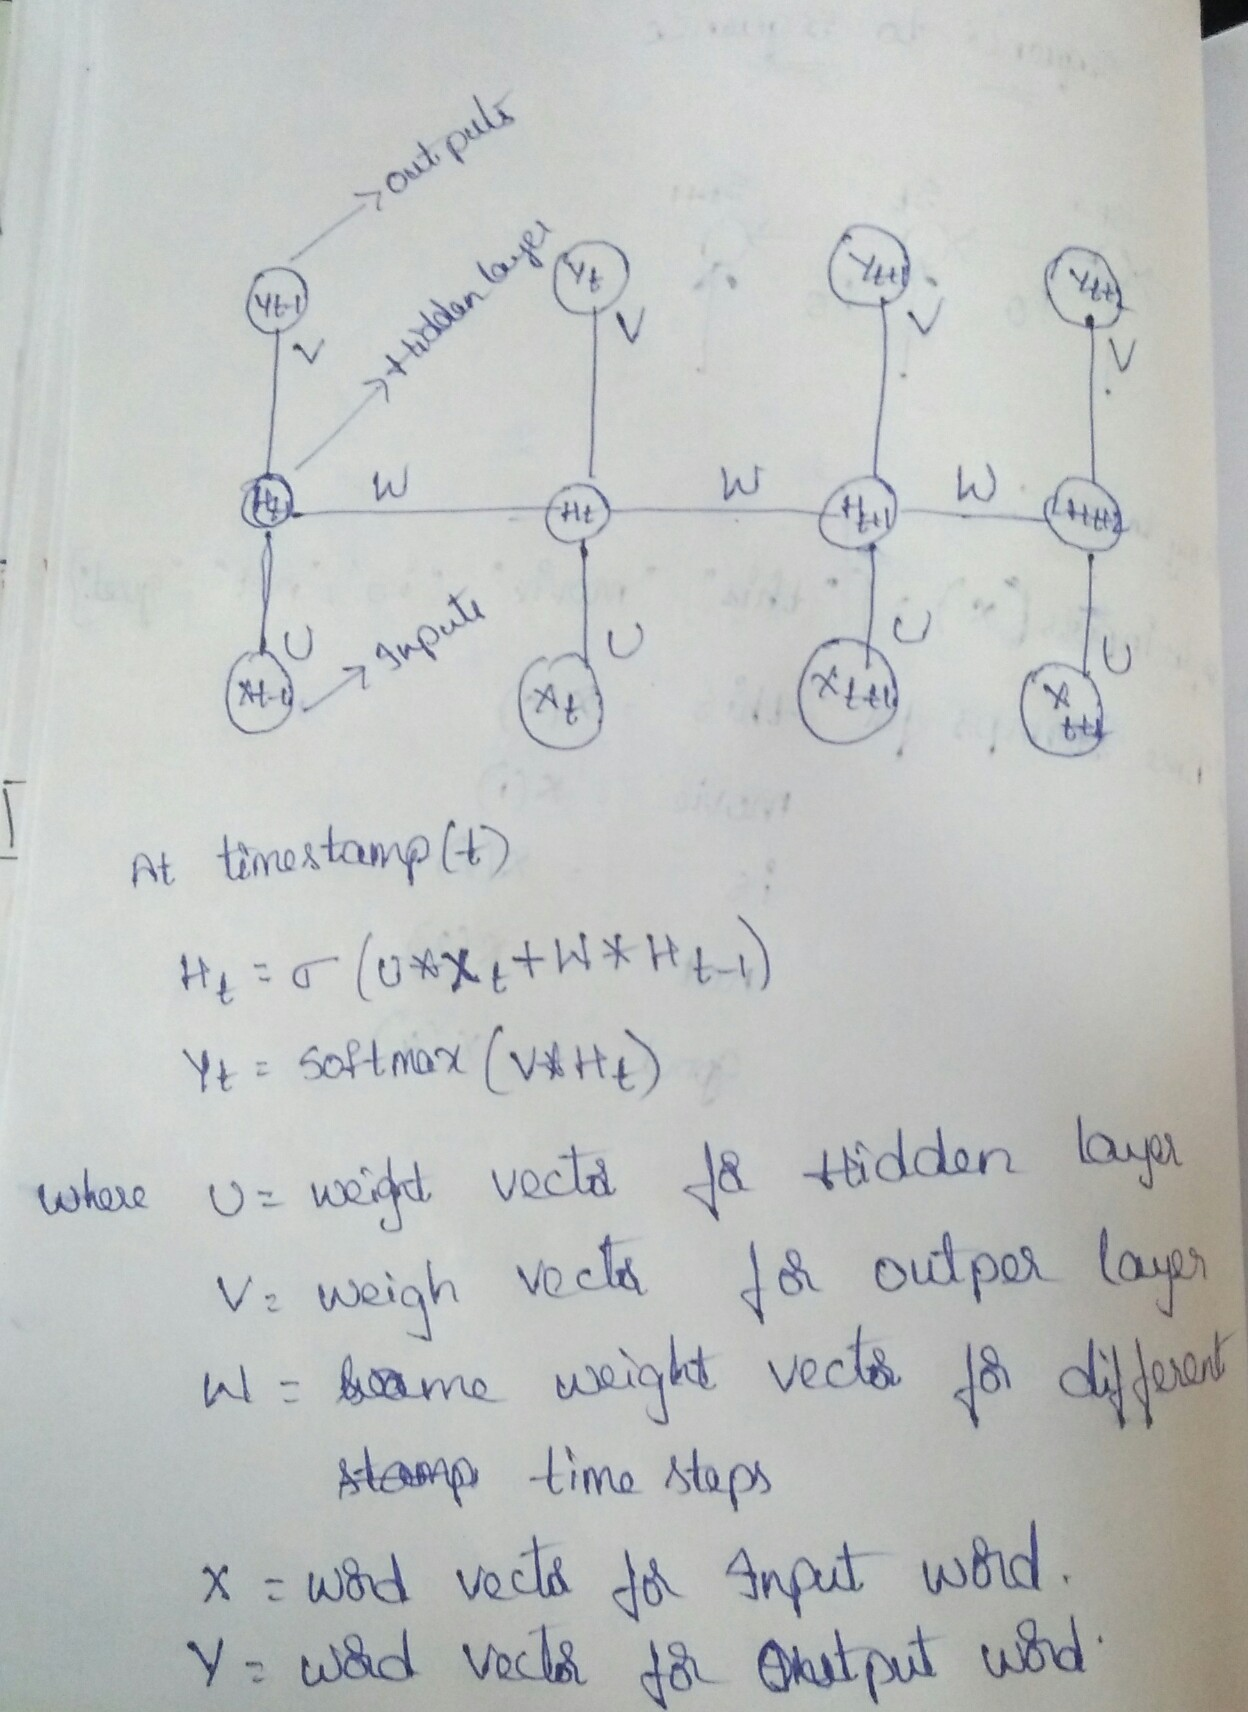 outputs
Hidden layer
Yt-1 Yt Yt+1
V V V V
W W W
Ht Ht+1 Ht+2
U U U U
Inputs
Xt-1 Xt Xt+1
At timestamp(t)
Ht = σ (U*Xt + W*Ht-1)
Yt = softmax (V*Ht)
where U = weight vector for Hidden layer
V = weigh vector for outper layer
W = same weight vector for different
time steps
X = word vector for Input word.
Y = word vector for Output word.